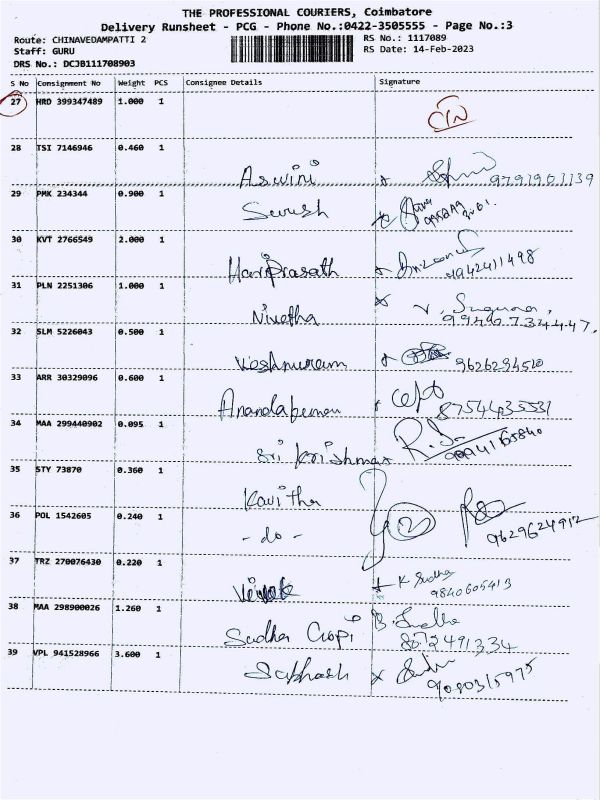 THE PROFESSIONAL COURIERS, Coimbatore
Delivery Runsheet - PCG - Phone No.:0422-3505555 - Page No.:3
Route: CHINAVEDAMPATTI 2
RS No.: 1117089
Staff: GURU
RS Date: 14-Feb-2023
DRS No.: DCJB111708903
S No Consignment No Weight PCS Consignee Details Signature
27 HRD 399347489 1.000 1
28 TSI 7146946 0.460 1 Aswini 9791901139
29 PMK 234344 0.900 1 Suresh
30 KVT 2766549 2.000 1 HariPrasath 9942411498
31 PLN 2251306 1.000 1 Nivetha
32 SLM 5226043 0.500 1 9626294510
33 ARR 30329096 0.600 1 8754435531
34 MAA 299440902 0.095 1 Sri
35 STY 73870 0.360 1 Kavitha
36 POL 1542605 0.240 1 - do - 9629624912
37 TRZ 270076430 0.220 1 K Sudha
9840605413
38 MAA 298900026 1.260 1 Sudha Gopi
39 VPL 941528966 3.600 1 Subhash 9080315975